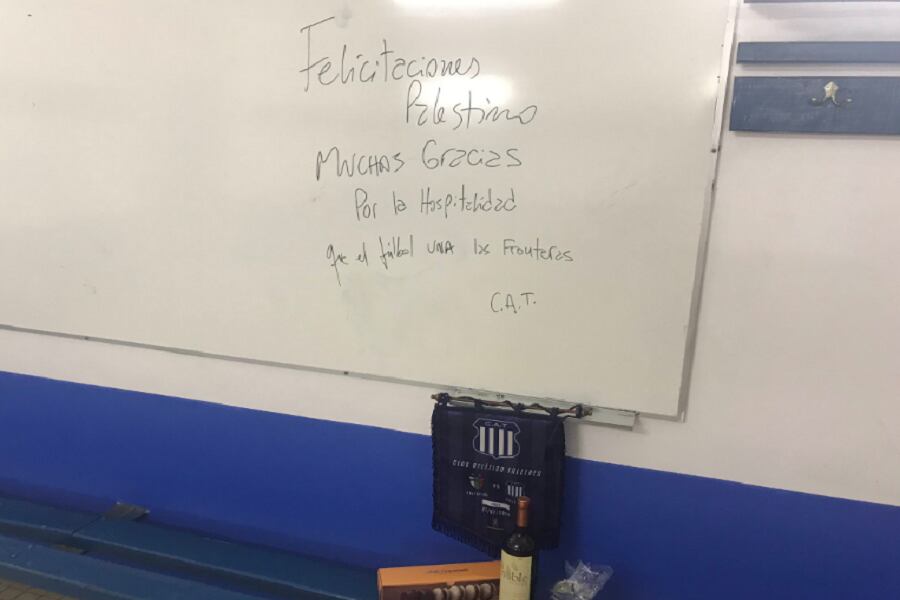 Felicitaciones
Palestino
MUCHAS Gracias
Por la Hospitalidad
que el fútbol UNA las Fronteras
C.A.T.
C.A.T
CLUB ATLÉTICO TALLERES
VS